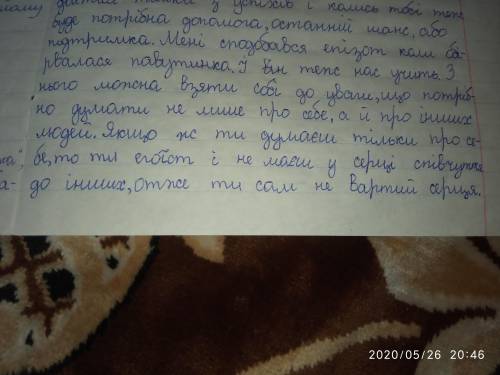 з успіхів і колись тобі теж
буде потрібна допомога, останній шанс, або
підтримка. Мені сподобався епізот коли ба-
рвалася павутинка. І він теж нас учить. З
нього можна взяти собі до уваги, що потріб-
но думати не лише про себе, а й про інших
людей. Якщо ж ти думаєш тільки про се-
бе, то ти егоїст і не маєш у серці співчуття
до інших, отже ти сам не вартий серця.
2020/05/26 20:46